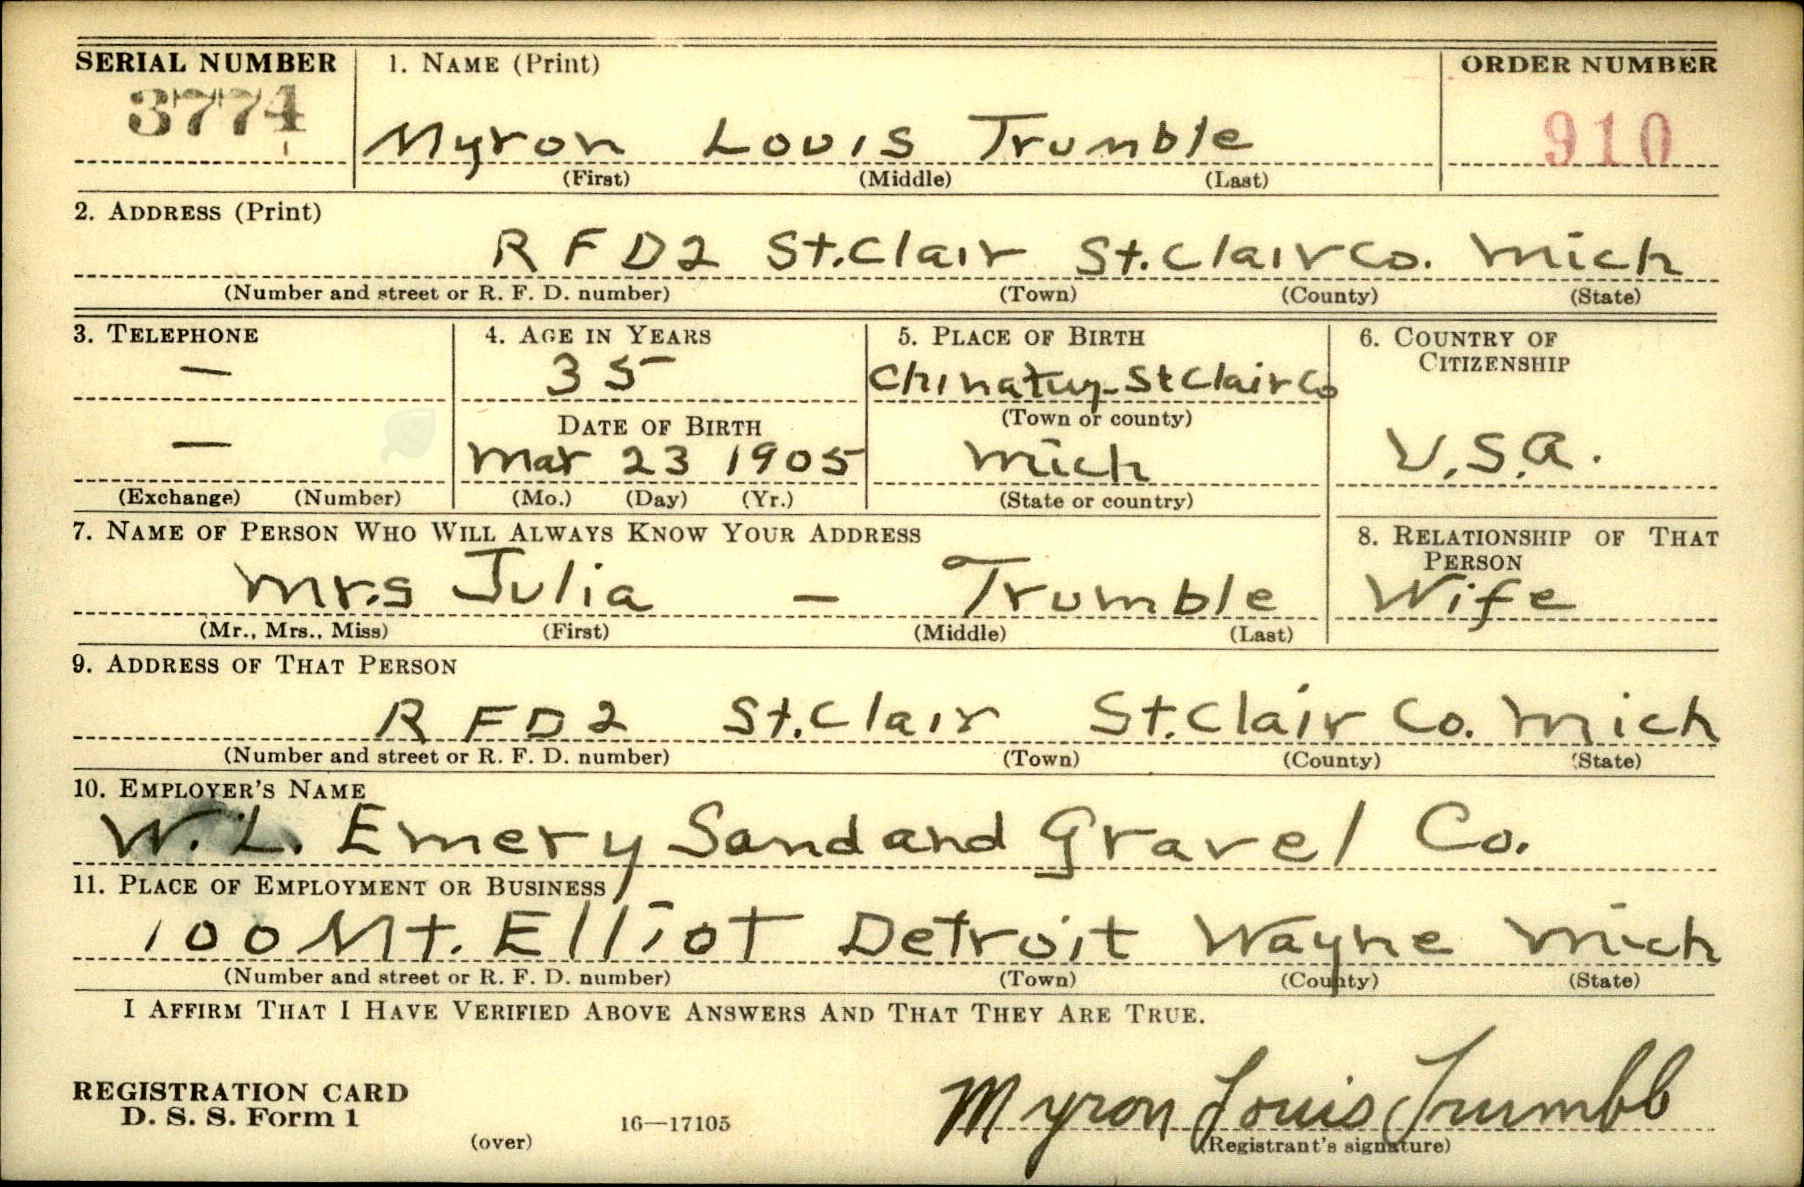 SERIAL NUMBER 1. NAME (Print) ORDER NUMBER
3774 Myron Louis Trumble 910
(First) (Middle) (Last)
2. ADDRESS (Print)
R F D 2 St. Clair St. Clair Co. Mich
(Number and street or R. F. D. number) (Town) (County) (State)
3. TELEPHONE 4. AGE IN YEARS 5. PLACE OF BIRTH 6. COUNTRY OF CITIZENSHIP
— 35 China twp. St Clair Co
(Town or county)
DATE OF BIRTH
— Mar 23 1905 Mich U.S.A.
(Exchange) (Number) (Mo.) (Day) (Yr.) (State or country)
7. NAME OF PERSON WHO WILL ALWAYS KNOW YOUR ADDRESS 8. RELATIONSHIP OF THAT PERSON
Mrs Julia — Trumble Wife
(Mr., Mrs., Miss) (First) (Middle) (Last)
9. ADDRESS OF THAT PERSON
R F D 2 St. Clair St. Clair Co. Mich
(Number and street or R. F. D. number) (Town) (County) (State)
10. EMPLOYER'S NAME
W. L. Emery Sand and Gravel Co.
11. PLACE OF EMPLOYMENT OR BUSINESS
100 Mt. Elliot Detroit Wayne Mich
(Number and street or R. F. D. number) (Town) (County) (State)
I AFFIRM THAT I HAVE VERIFIED ABOVE ANSWERS AND THAT THEY ARE TRUE.
REGISTRATION CARD
D. S. S. Form 1 16—17105 Myron Louis Trumble
(over) (Registrant's signature)